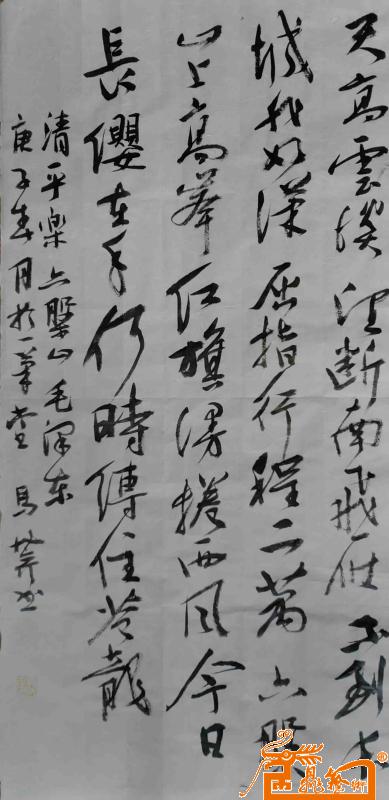 天高雲淡望断南飛雁不到长
城非好漢屈指行程二萬六盤
山上高峰红旗漫捲西风今日
長纓在手何時縛住苍龍
清平樂六盤山毛泽东
庚子春月於一筆堂馬书